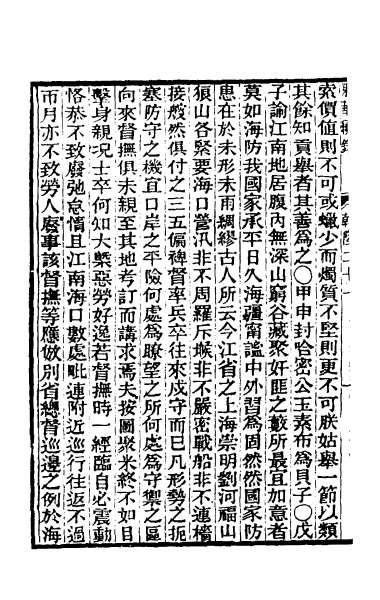 索價值則不可或蠟少而燭質不堅則更不可朕姑舉一節以類
其餘知貢舉者其善為之〇甲申封哈密公玉素布為貝子〇戊
子諭江南地居腹內無深山窮谷藏聚奸匪之藪所最宜加意者
莫如海防我國家承平日久海疆甯謐中外習為固然然國家防
患在於未形未雨綢繆古人所云今江省之上海崇明劉河福山
狼山各緊要海口營汛非不周羅斥堠非不嚴密戰船非不連檣
接般然俱付之三五偏裨督率兵卒往來戍守而已凡形勢之扼
塞防守之機宜口岸之平險何處為瞭望之所何處為守禦之區
向來督撫俱未親至其地考訂而講求焉夫按圖聚米終不如目
擊身親況士卒何知大槩惡勞好逸若督撫時一經臨自必震動
恪恭不致廢弛怠惰且江南海口數處毗連附近巡行往返不過
帀月亦不致勞人廢事該督撫等應倣別省總督巡邊之例於海